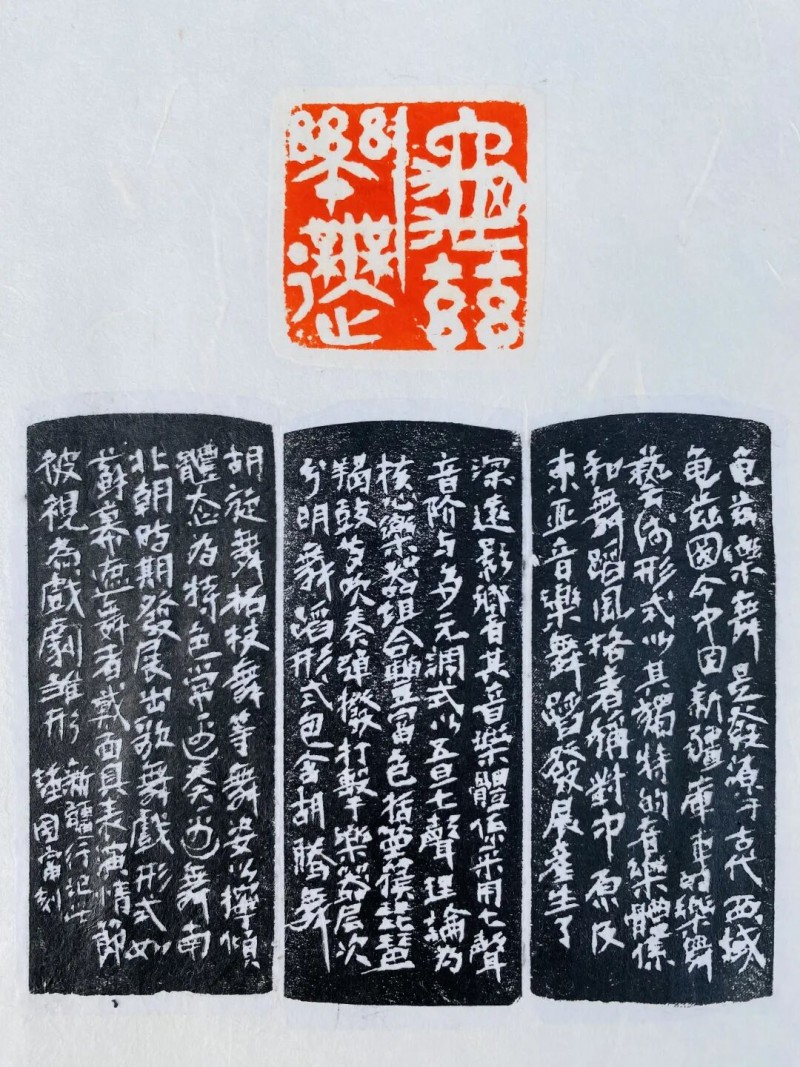 龜茲
樂舞
龟兹樂舞是發源于古代西域
龟兹國今中国新疆庫車的樂舞
藝术形式以其獨特的音樂體系
和舞蹈風格著稱對中原及
東亚音樂舞蹈發展產生了
深遠影響其音樂體係采用七聲
音阶与多元調式以五旦七聲理論为
核心樂器組合豐富包括箜篌琵琶
羯鼓等吹奏彈撥打擊樂器层次
分明舞蹈形式包含胡騰舞
胡旋舞柘枝舞等舞姿以擰傾
體态为特色常边奏边舞南
北朝時期發展出歌舞戲形式如
蘇幕遮舞者戴面具表演情節
被視為戲劇雏形
新疆行記
國富刻